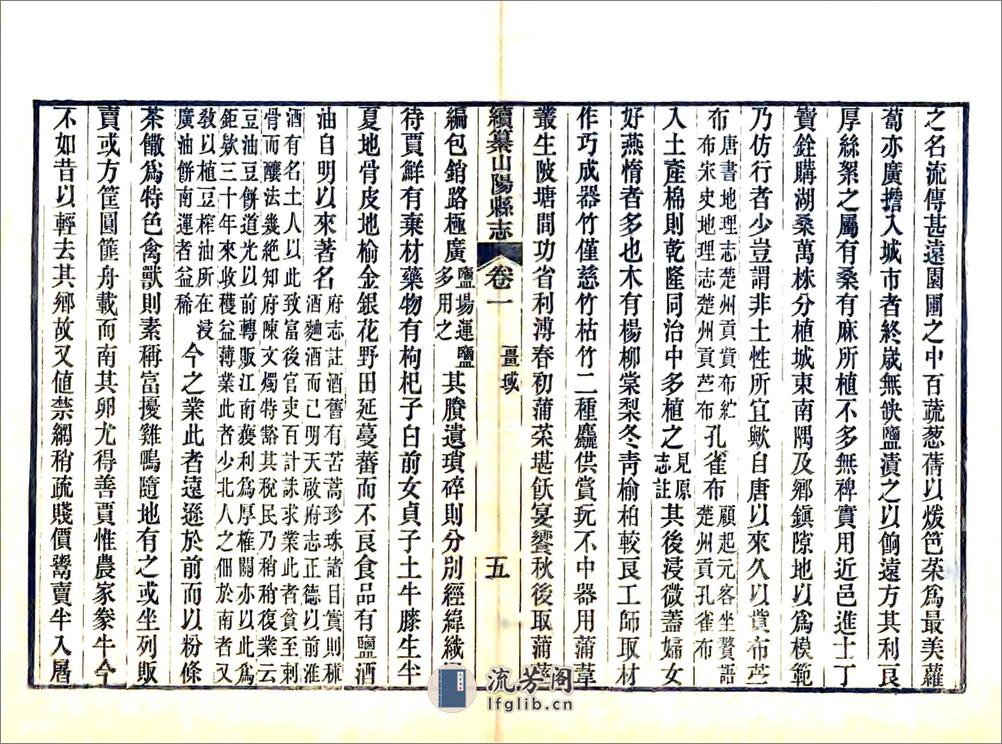 之名流傳甚遠園圃之中百蔬葱蒨以煖笆菜爲最美蘿
蔔亦廣擔入城市者終歲無缺鹽漬之以餉遠方其利良
厚絲絮之屬有桑有麻所植不多無裨實用近邑進士丁
寶銓購湖桑萬株分植城東南隅及鄉鎮隙地以爲模範
乃仿行者少豈謂非土性所宜歟自唐以來久以貲布苎
布唐書地理志楚州貢貲布紵布宋史地理志楚州貢苎布孔雀布顧起元客坐贅語楚州貢孔雀布
入土產棉則乾隆同治中多植之見原志註其後浸微蓋婦女
好燕惰者多也木有楊柳棠梨冬青榆柏較良工師取材
作巧成器竹僅慈竹枯竹二種麤供賞玩不中器用蒲葦
叢生陂塘間功省利溥春初蒲菜堪飫宴饗秋後取蒲葦
續纂山陽縣志 卷一 畺域 五
編包銷路極廣鹽場運鹽多用之其賸遺瑣碎則分別經緯織
待賈鮮有棄材藥物有枸杞子白前女貞子土牛膝生半
夏地骨皮地榆金銀花野田延蔓蕃而不良食品有鹽酒
油自明以來著名府志註酒舊有苦蒿珍珠諸目實則稬酒麵酒而已明天啟府志正德以前淮
酒有名土人以此致富後官吏百計誅求業此者貧至刺骨而釀法幾絕知府陳文燭特豁其稅民乃稍稍復業云
豆油豆餅道光以前轉販江南獲利爲厚榷關亦以此爲鉅欵三十年來收穫益薄業此者少北人之佃於南者又
敎以植豆榨油所在浸廣油餅南運者益稀今之業此者遠遜於前而以粉條
茶饊爲特色禽獸則素稱富擾雞鴨隨地有之或坐列販
賣或方筐圓篚舟載而南其卵尤得善賈惟農家豢牛今
不如昔以輕去其鄉故又値禁網稍疏賤價鬻賣牛入屠
流芳阁
lfglib.cn